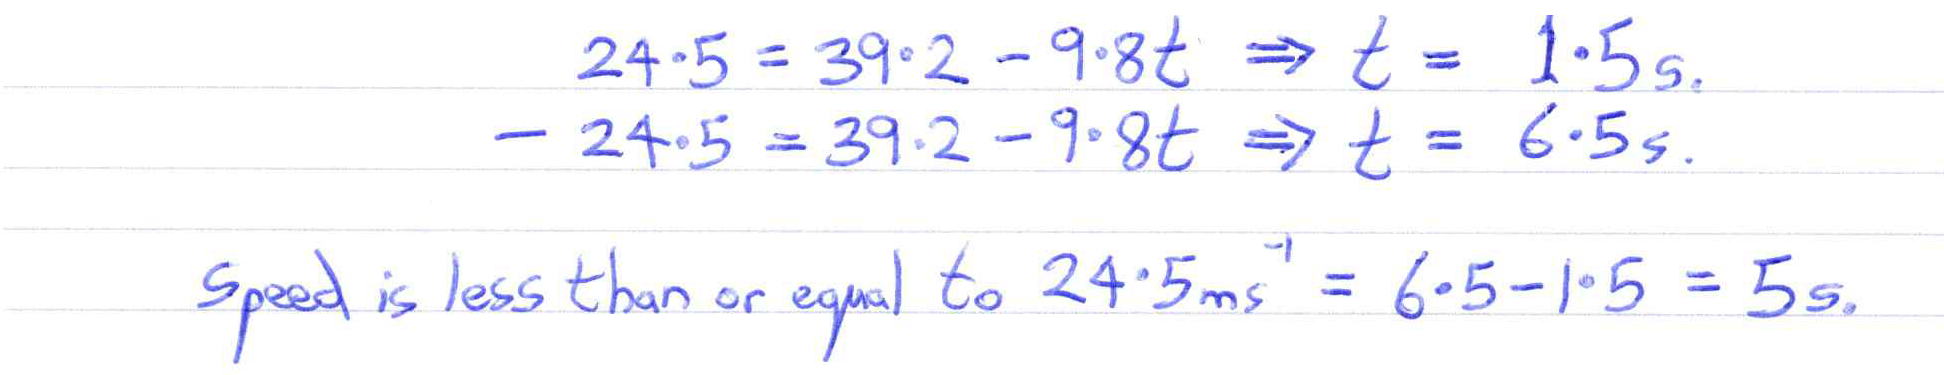 24·5 = 39·2 - 9·8t ⇒ t = 1·5s.
- 24·5 = 39·2 - 9·8t ⇒ t = 6·5s.
Speed is less than or equal to 24·5ms⁻¹ = 6·5-1·5 = 5s.